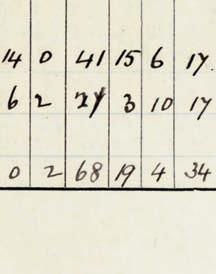 14 0 41 15 6 17.
6 2 27 3 10 17
0 2 68 19 4 34